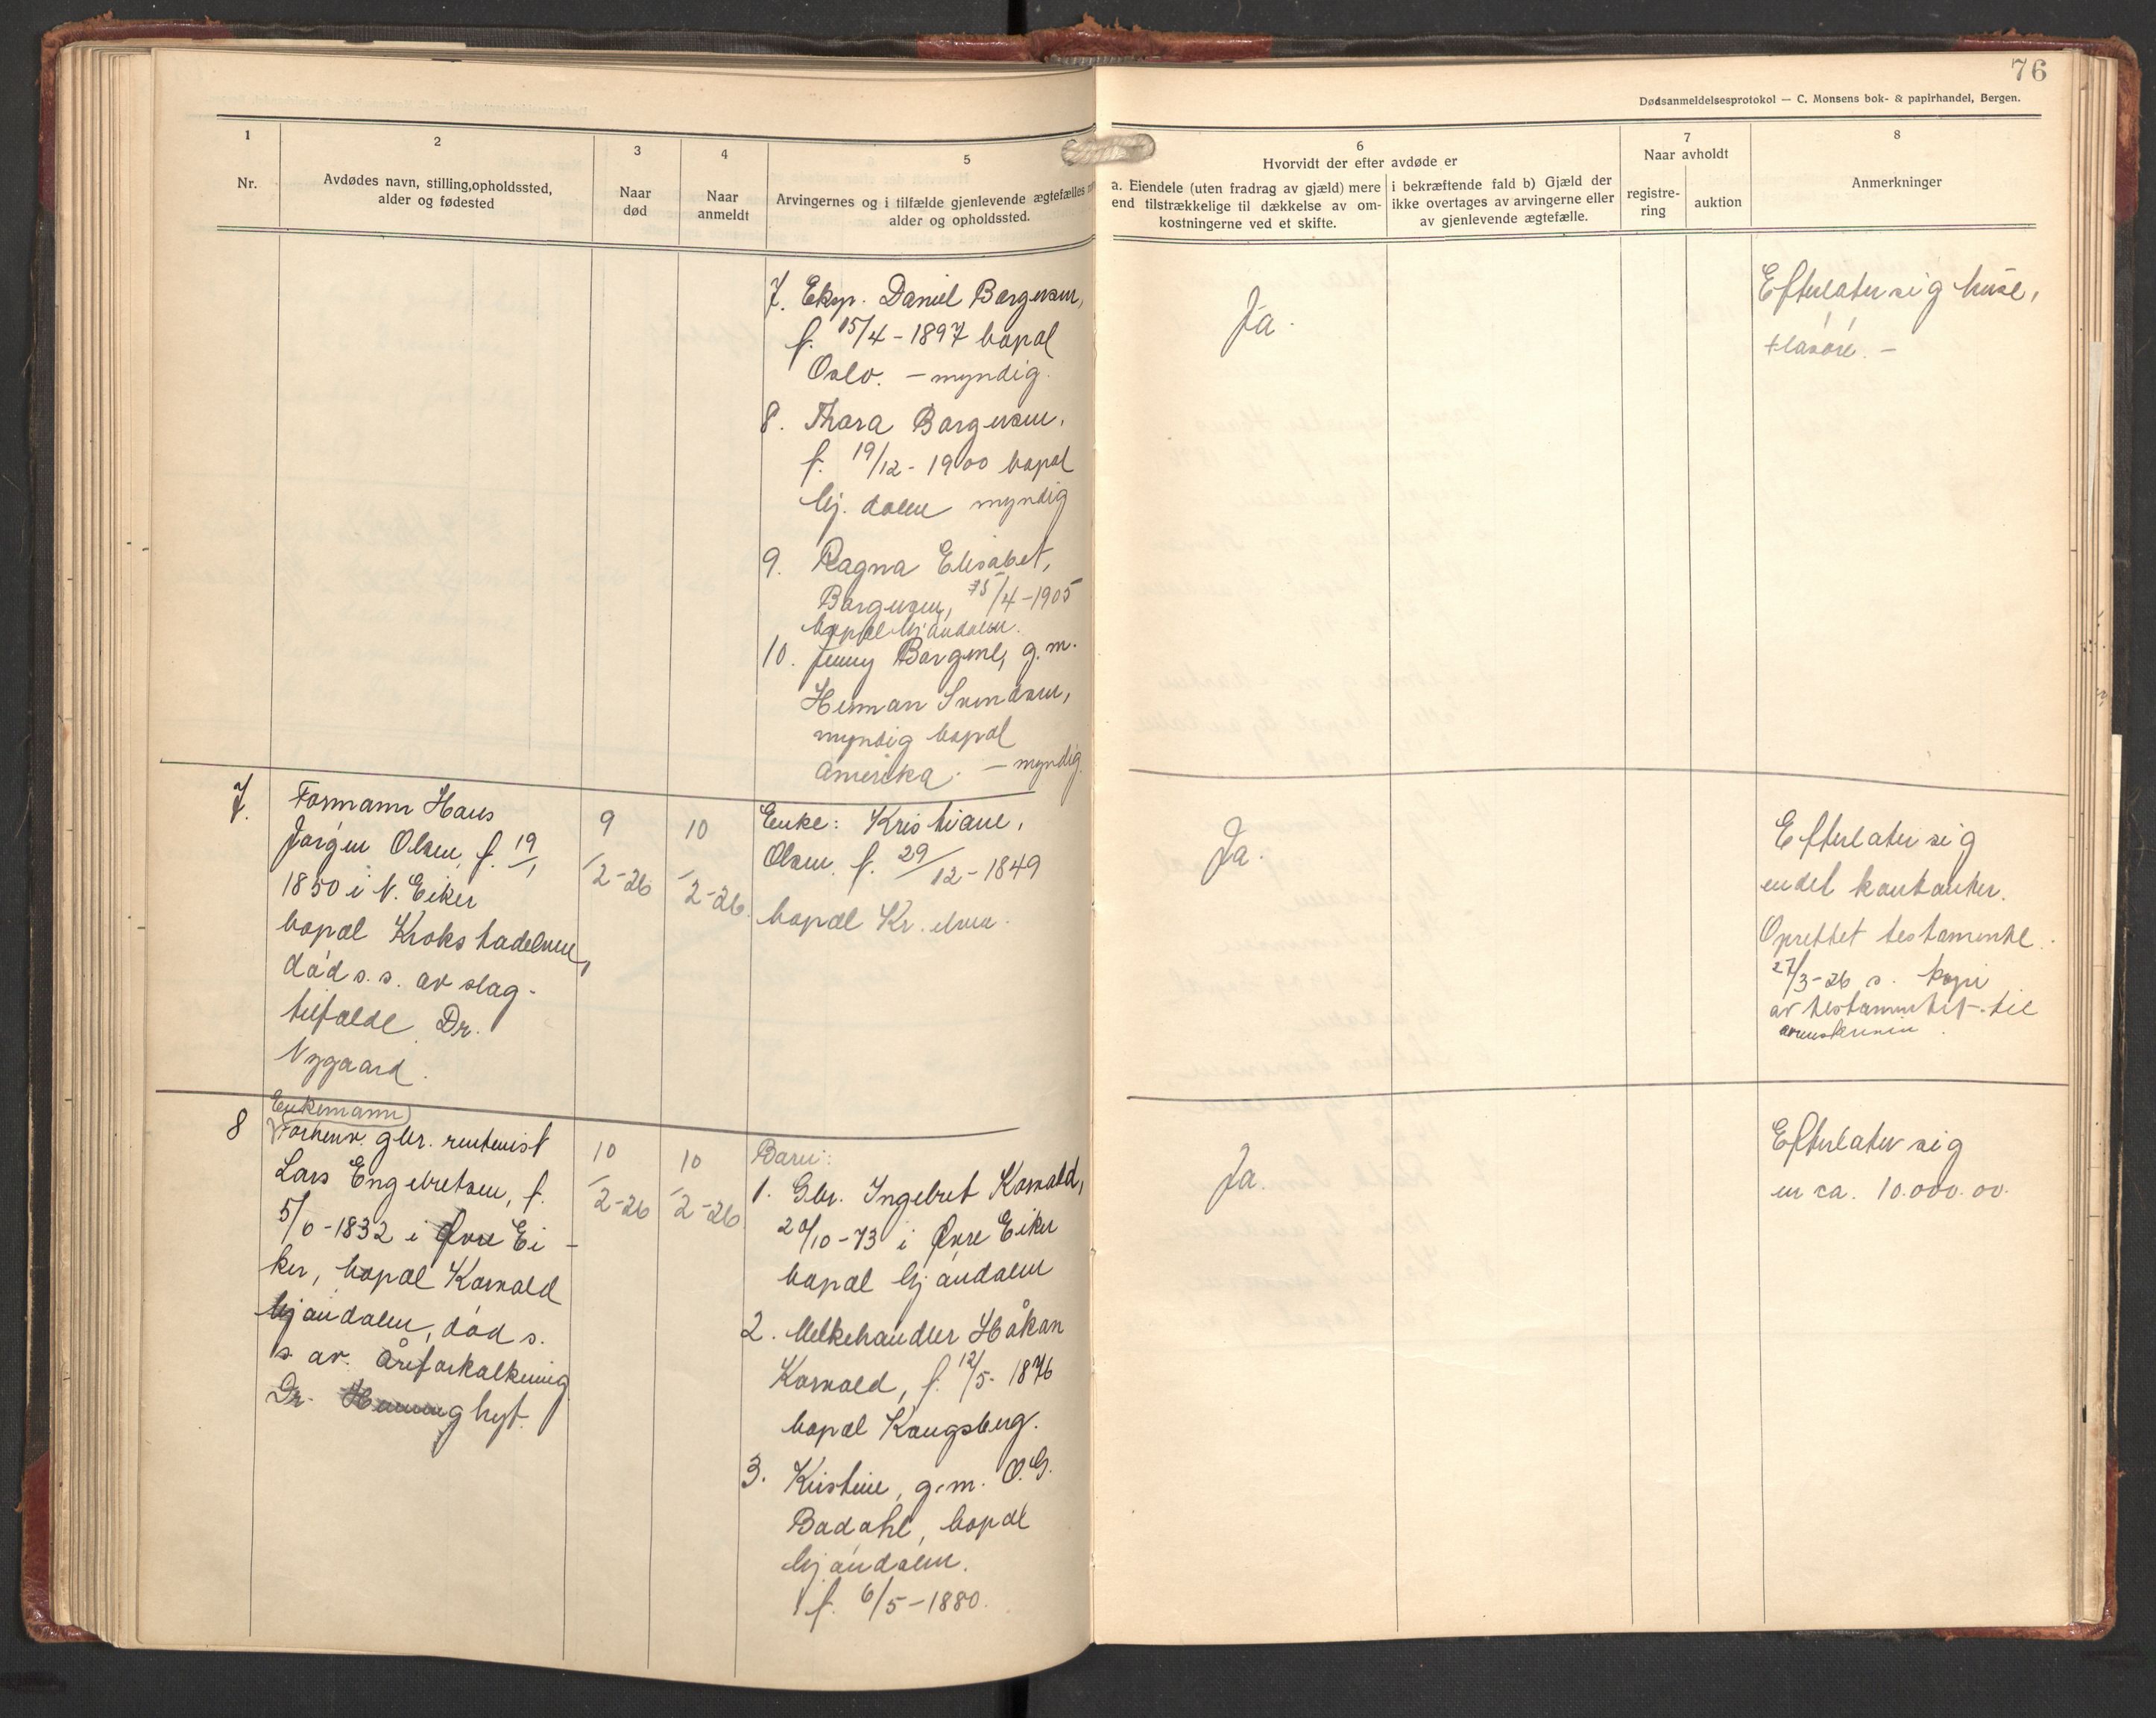 76
Dødsanmeldelsesprotokol — C. Monsens bok- & papirhandel, Bergen.
1
Nr.
2
Avdødes navn, stilling, opholdssted,
alder og fødested
3
Naar
død
4
Naar
anmeldt
5
Arvingernes og i tilfælde gjenlevende ægtefælles
alder og opholdssted.
6
Hvorvidt der efter avdøde er
a. Eiendele (uten fradrag av gjæld) mere
end tilstrækkelige til dækkelse av om-
kostningerne ved et skifte.
i bekræftende fald b) Gjæld der
ikke overtages av arvingerne eller
av gjenlevende ægtefælle.
7
Naar avholdt
registre-
ring
auktion
8
Anmerkninger
7. Eksp. Daniel Borgersen,
f. 15/4 - 1897 bopæl
Oslo. - myndig.
8. Thora Borgersen,
f. 19/12 - 1900 bopæl
Mj. dalen myndig
9. Ragna Elisabet,
Borgersen, 15/4 - 1905
bopæl Mjøndalen.
10. Jenny Borgersen, g. m.
Herman Svendsen,
myndig bopæl
Amerika. - myndig.
Ja.
Efterlater sig huse,
+ løsøre. -
7.
Formann Hans
Jørgen Olsen, f. 19/1
1850 i N. Eiker
bopæl Krokstadelven,
død s. s. av slag-
tilfælde Dr.
Nygaard.
9
/2-26
10
/2-26.
Enke: Kristiane,
Olsen. f. 29/12 - 1849
bopæl Kr. elven.
Ja.
Efterlater sig
endel kontanter.
Oprettet testamente.
27/3-26 s. kopi
av testamentet til
8
Enkemann
Forhenv. gbr. rentenist
Lars Engebretsen, f.
5/6 - 1832 i Øvre Ei-
ker, bopæl Korvald
Mjøndalen, død s.
s. av. Åreforkalkning
Dr. hyt.
10
/2-26
10
/2-26
Barn:
1. Gbr. Ingebret Korvald,
20/10 - 73 i Øvre Eiker
bopæl Mjøndalen
2. Melkehandler Håkan
Korvald, f. 12/5 - 1876
bopæl Kongsberg.
3. Kristine, g. m. O. G.
Badahl, bopæl
Mjøndalen.
f. 6/5 - 1880.
Ja.
Efterlater sig
en ca. 10.000.00.